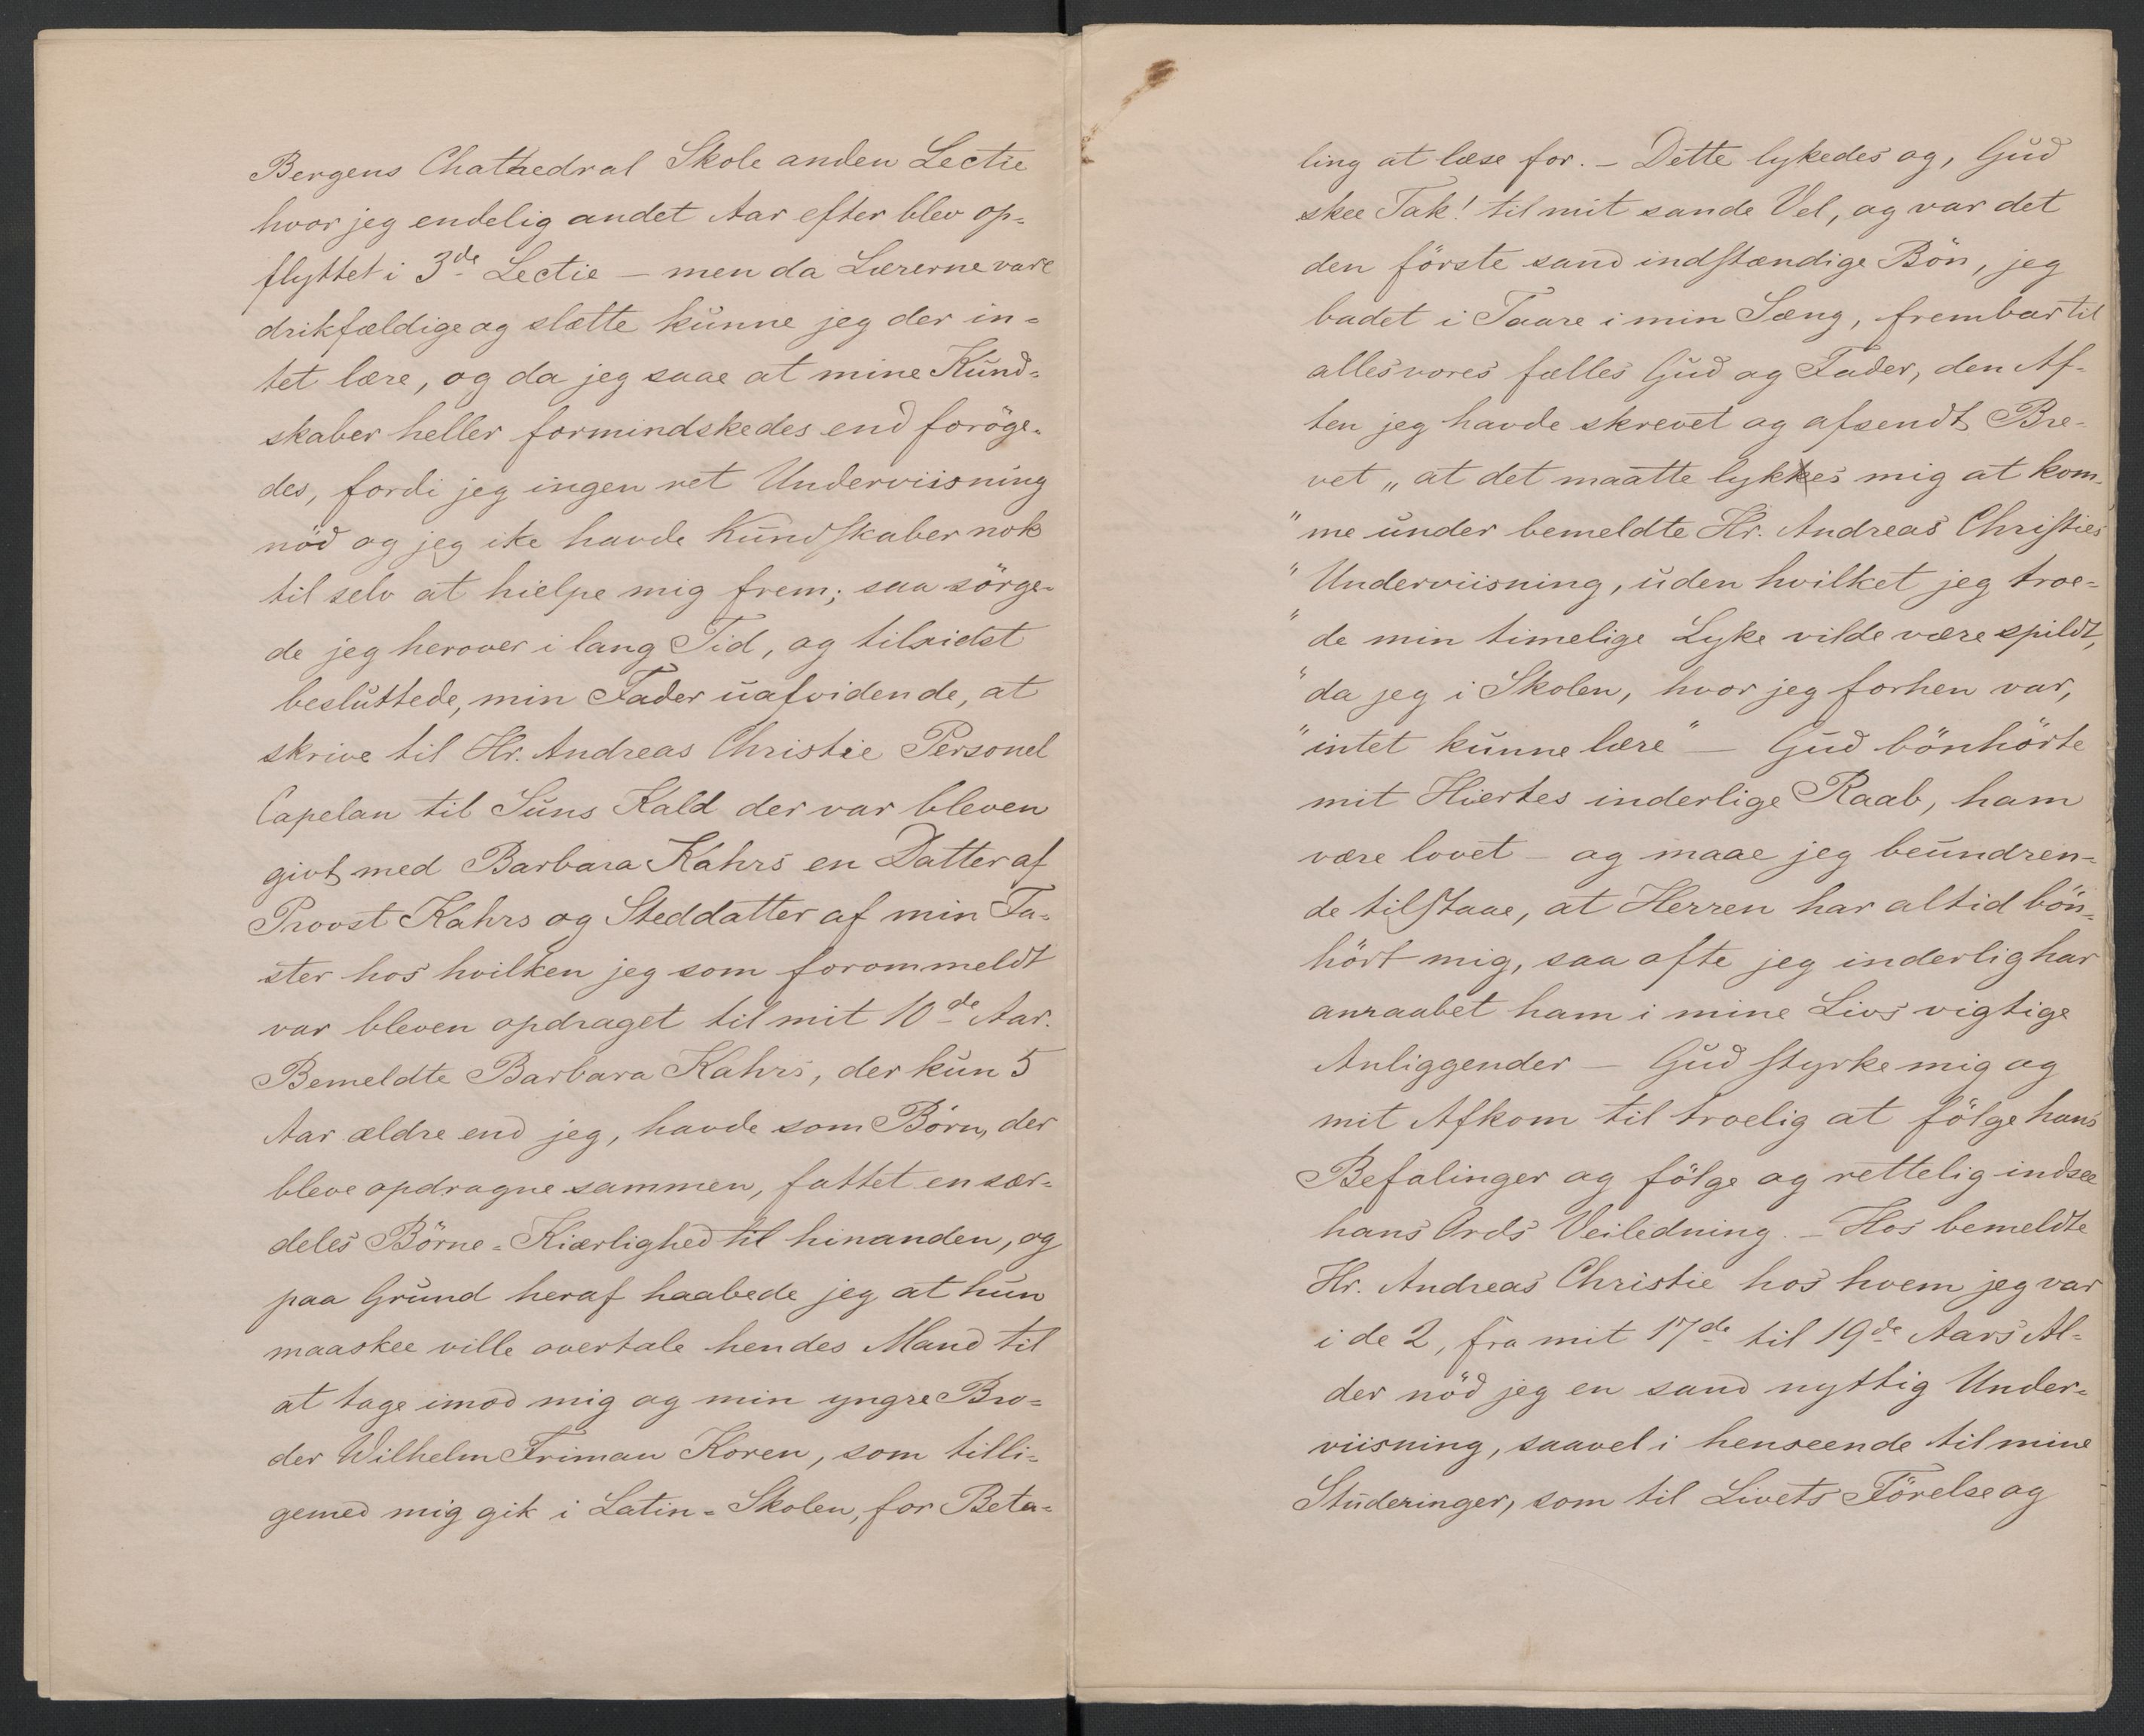 Bergens Chathedral Skole anden Lectie
hvor jeg endelig andet Aar efter blev op-
flyttet i 3de Lectie — men da Lærerne vare
drikfældige og slætte kunne jeg der in-
tet lære, og da jeg saae at mine Kund-
skaber heller formindskedes end foröge-
des, fordi jeg ingen ret Underviisning
nöd og jeg ike havde Kundskaber nok
til selv at hielpe mig frem; saa sörge-
de jeg herover i lang Tid, og tilsidst
besluttede, min Fader uafvidende, at
skrive til Hr. Andreas Christie Personel
Capelan til Suns Kald der var bleven
givt med Barbara Kahrs en Datter af
Provst Kahrs og Steddatter af min Fa-
ster hos hvilken jeg som forommeldt
var bleven opdraget til mit 10de Aar.
Bemeldte Barbara Kahrs, der kun 5
Aar ældre end jeg, havde som Börn, der
bleve opdragne sammen, fattet en sær-
deles Börne-Kiærlighed til hinanden, og
paa Grund heraf haabede jeg at hun
maaskee ville overtale hendes Mand til
at tage imod mig og min yngre Bro-
der Wilhelm Friman Koren, som tilli-
gemed mig gik i Latin-Skolen, for Beta-
ling at læse for. — Dette lykedes og, Gud
skee Tak! til mit sande Vel, og var det
den förste sand indstændige Bön, jeg
badet i Taare i min Sæng, frembar til
alles vores fælles Gud og Fader, den Af-
ten jeg havde skrevet og afsendt Bre-
vet „at det maatte lykkes mig at kom-
"me under bemeldte Hr. Andreas Christies
"Underviisning, uden hvilket jeg troe-
"de min timelige Lyke vilde være spildt,
"da jeg i Skolen, hvor jeg forhen var,
"intet kunne lære" — Gud bönhörte
mit Hiertes inderlige Raab, ham
være lovet — og maae jeg beundren-
de tilstaae, at Herren har altid bön-
hört mig, saa ofte jeg inderlig har
anraabet ham i mine Livs vigtige
Anliggender — Gud styrke mig og
mit Afkom til troelig at fölge hans
Befalinger og fölge og rettelig indsee
hans Ords Veiledning. — Hos bemeldte
Hr. Andreas Christie hos hvem jeg var
i de 2, fra mit 17de til 19de Aars Al-
der nöd jeg en sand nyttig Under-
viisning, saavel i henseende til mine
Studeringer, som til Livets Förelse og